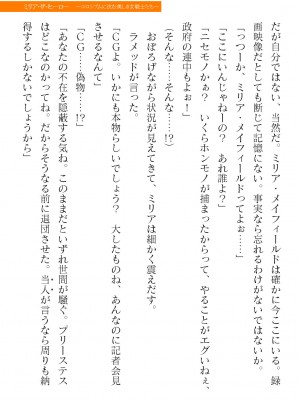 だが自分ではない、当然だ。ミリア・メイフィールドは確かに今ここにいる。録
画映像だとしても断じて記憶にない。事実なら忘れるわけがないではないか。
「っつーか、ミリア・メイフィールドってよぉ……」
「ここにいんじゃねーの？　あれ誰よ？」
「ニセモノかぁ？　いくらホンモノが捕まったからって、やることがエグいねぇ、
政府の連中もよぉ！」
（そんな……そんな……!?）
おぼろげながら状況が見えてきて、ミリアは細かく震えだす。
ラメッドが言う。
「ＣＧよ。いかにも本物らしいでしょう？　大したものね、あんなのに記者会見
させるなんて」
「ＣＧ……偽物……!?」
「あなたの不在を隠蔽する気ね。このままだといずれ世間が騒ぐ。プリーステス
はどこなのかってね。だからそうなる前に退団させた。当人が言うなら周りも納
得するしかないでしょうから」